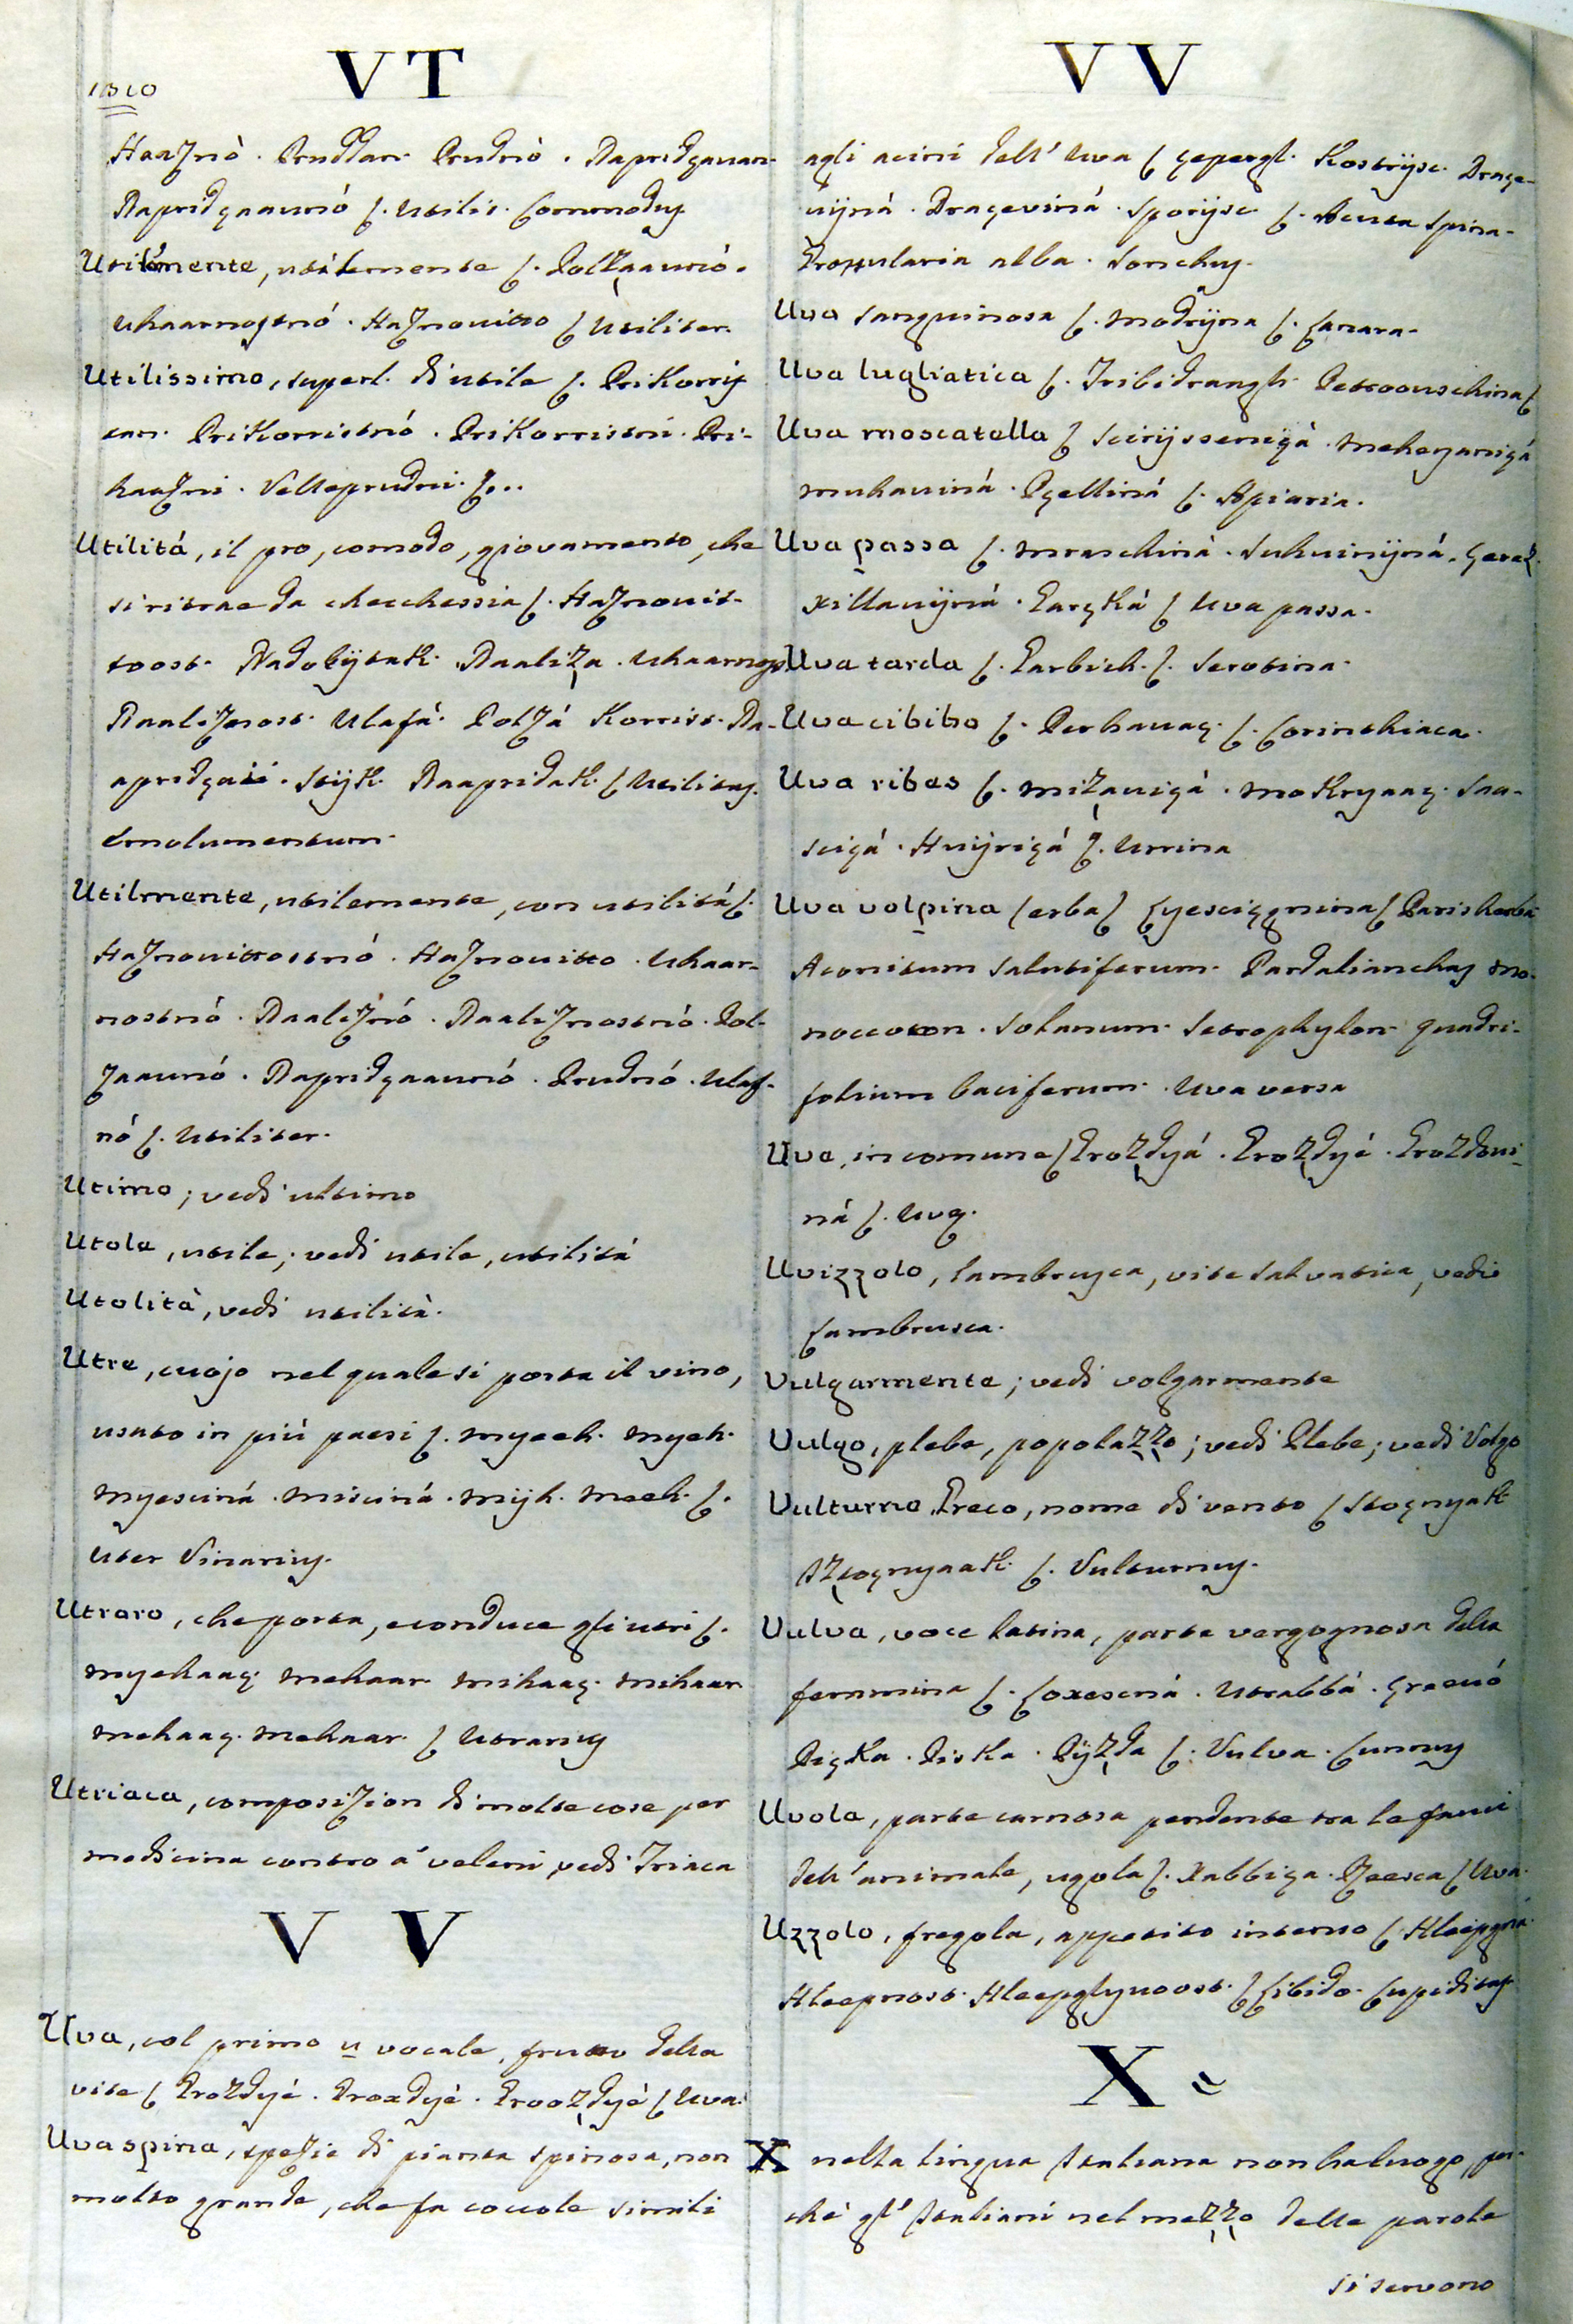 1310
VT
Haaznò. Pruddan. Prudnò. Napridgavan.
Napridgaaunó ſ. Utilis. Commodus
Utilemente, utilemente ſ. Polzaaunó.
Uhaarnostnó. Haznouitto ſ Utiliter.
Utilissimo, superl. di utile ſ. PriKorris
tan. PriKorristnó. PriKorristni. Pri-
haazni. Velleprudni. ſ...
Utilitá, il pro, comodo, giovamento, che
si ritrae da checchessia ſ. Haznouit-
toost. Nadobÿtak. Naaliza. Uhaarnost
Naaliznost. Ulafá. Polzá Korrist. Na-
apridgaií. Stÿk. Naapridak. ſ Utilitas.
Emolumentum.
Utilmente, utilemente, con utilitá ſ.
Haznouittostnó. Haznouitto. Uhaar-
nostnó. Naaliznó. Naaliznostnó. Pol-
zaaunó. Napridgaaunó. Prudnó. Ulaf-
nó ſ. Utiliter.
Utimo; vedi ultimo
Utole, utile; vedi utile, utilitá
Utolità, vedi utilità.
Utre, cuojo nel quale si porta il vino,
usato in piú paesi ſ. myeeh. myeh.
myesciná. misciná. mÿh. meeh. ſ.
Uter Vinarius.
Utraro, che porta, e conduce gli utri ſ.
myehaaç. mehaar. mihaaç. mihaar.
mehaaç. mehaar. ſ Utrarius
Utriaca, composizion di molte cose per
medicina contro a' veleni, vedi Triaca
VV
Uva, col primo u vocale, frutto della
vite ſ Grozdyé. Groxdyé. Groozdyé ſ Uva.
Uva spina, spezie di pianta spinosa, non
molto grande, che fa coccole simili
VV
agli acini dell' uva ſ çepergl. Kostrÿsc. Draçe-
uÿná. Draçeviná. Sporÿsc ſ. Acuta Spina.
Grossularia alba. Sonchus.
Uva sanguinosa ſ. Modrÿna ſ. Canara.
Uva lugliatica ſ. Tribidrangh. Petroouschina ſ
Uva moscatella ſ Scirÿsseniçà. Meheyaniçá
muhauiná. Pçelliná ſ. Apiaria.
Uva passa ſ. mraschiná. Suhuinÿná. Çerez.
xillauÿná. Earçká ſ Uva passa.
Uva tarda ſ. Garbich. ſ. Serotina.
Uva cibibo ſ. Perhauaç. ſ. Corinthiaca.
Uva ribes ſ. Mizauiçá. Mokryaaç. Sau-
sciçá. Huÿriçá ſ. Urrina
Uva volpina (erba) ſ Lyesciçgnina ſ Paris herba
Aconitum salutiferum. Pardalianches mo-
noccocon. Solanum. Setrophylon quadri-
folium baciferum. Uva versa
Uva, in comune ſ Grozdyá. Grozdyé. Grozdoui-
ná ſ. Uva.
Uvizzolo, lambrusca, vite salvatica, vedi
Lambrusca.
Vulgarmente; vedi volgarmente
Vulgo, plebe, popolazzo; vedi Plebe; vedi Volgo
Vulturno Greco, nome di vento ſ Stoçnyak
Iztoçnyaak. ſ. Vulturnus.
Vulva, voce latina, parte vergognosa della
femmina ſ. Coxesciná. Utrabbá. Çreeuó
Piçka. Piska. Pÿzda ſ. Vulva. Cunnus
Uvola, parte carnosa pendente tra le fauci
dell' animale, ugola ſ. Xabbiça. Rzeesca ſ Uva.
Uzzolo, fregola, appetito intenso ſ Hleepgná.
Hleepnost. Hleepglyuoost. ſ Libido. Cupiditas.
X
X nella lingua Italiana non ha luogo, per-
chè gl' Italiani nel mezzo delle parole
si servono